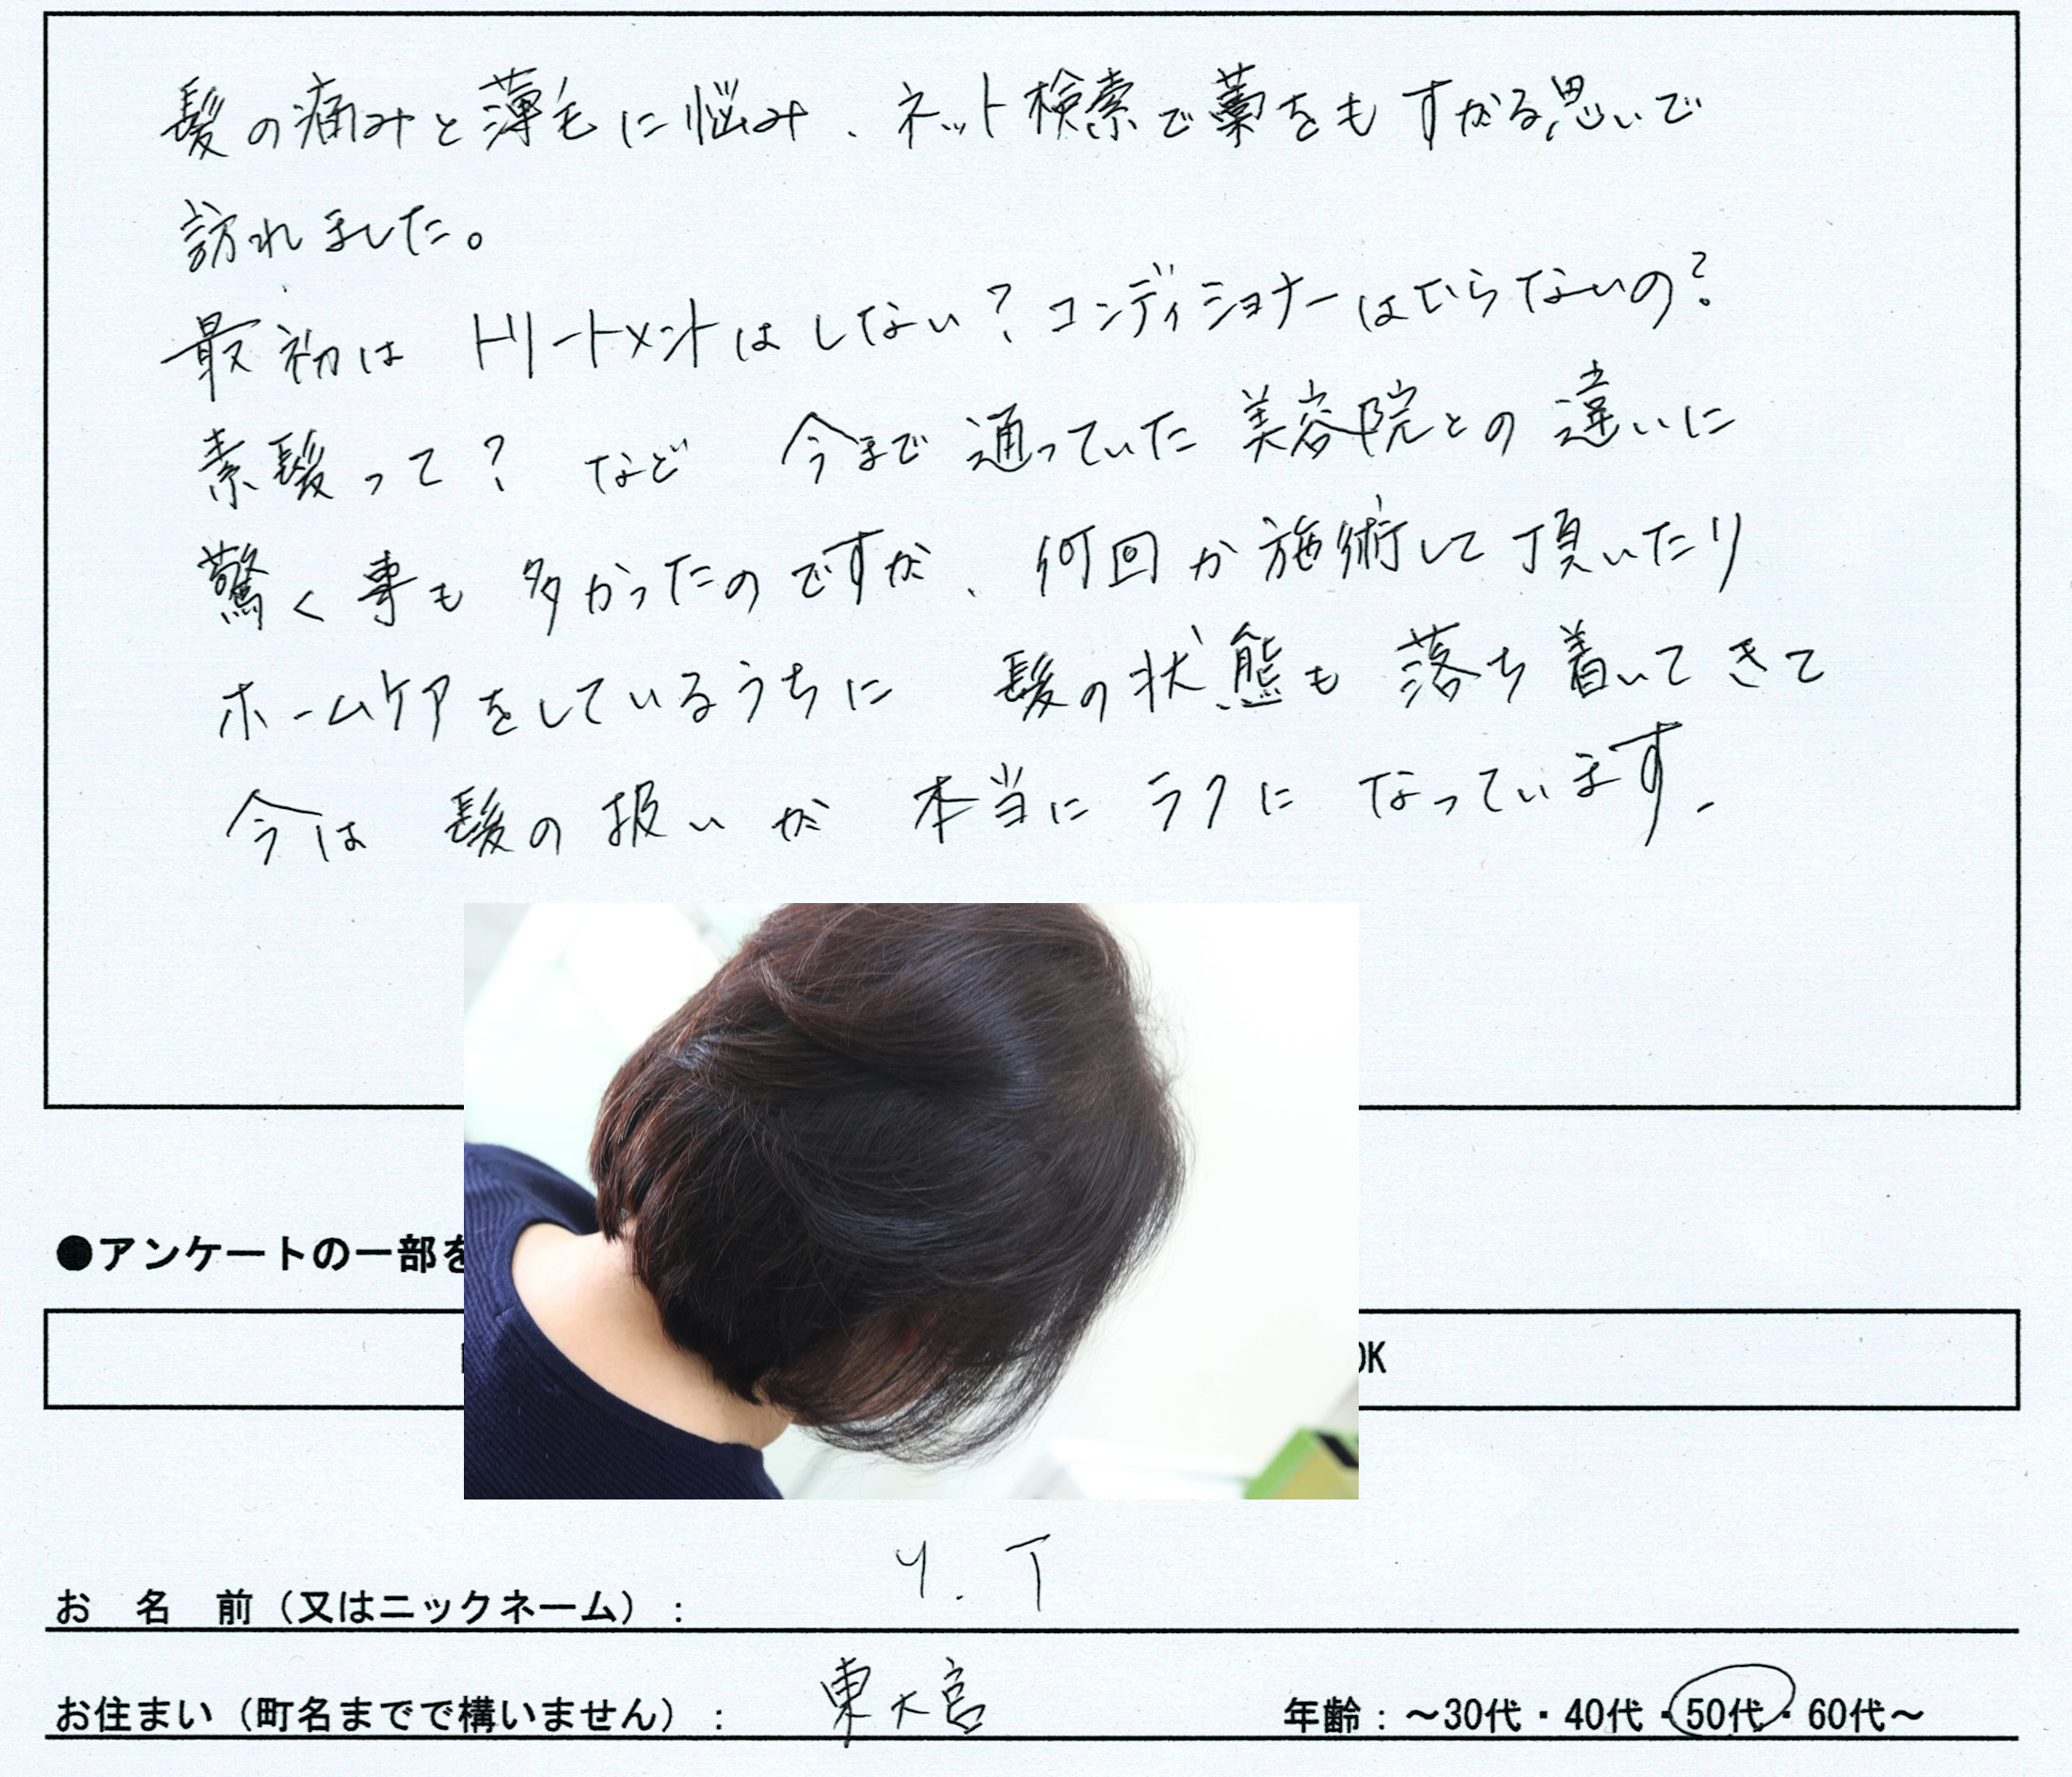 髪の痛みと薄毛に悩み、ネット検索で藁をもすがる思いで
訪れました。
最初は トリートメントはしない？コンディショナーはいらないの？
素髪って？ など 今まで通っていた美容院との違いに
驚く事も多かったのですが、何回か施術して頂いたり
ホームケアをしているうちに 髪の状態も落ち着いてきて
今は 髪の扱いが 本当にラクに なっています。
●アンケートの一部を
OK
お 名 前（又はニックネーム）： Y.T
お住まい（町名までで構いません）： 東大宮 年齢：～30代・40代・50代・60代～